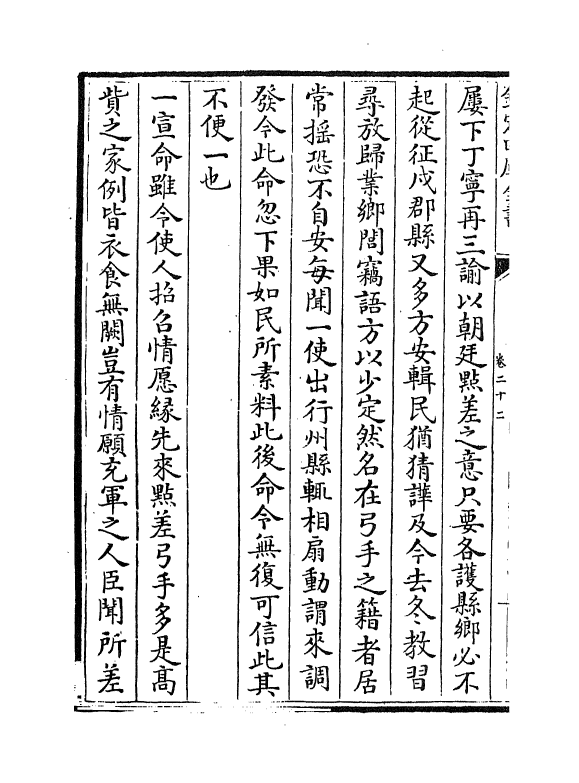 屢下丁寧再三諭以朝廷點差之意只要各護縣鄉必不
起從征戍郡縣又多方安輯民猶猜譁及今去冬教習
尋放歸業鄉閭竊語方以少定然名在弓手之籍者居
常摇恐不自安每聞一使出行州縣輒相扇動謂來調
發今此命忽下果如民所素料此後命令無復可信此其
不便一也
一宣命雖令使人招召情愿緣先來點差弓手多是髙
貲之家例皆衣食無闕豈有情願充軍之人臣聞所差
卷二十二